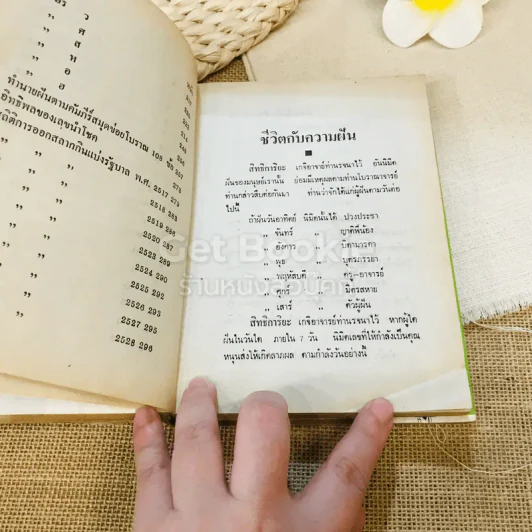 ว
ศ
ส
ห
อ
ฮ
ทำนายฝันตามคัมภีร์สมุดข่อยโบราณ 108 ข้อ
อิทธิพลของเลขนำโชค
สถิติการออกสลากกินแบ่งรัฐบาล พ.ศ. 2517 278
2518 283
2519 285
2520 287
2523 289
2524 290
2525 292
2526 293
2527 295
2528 296
ชีวิตกับความฝัน
สิทธิการิยะ เกจิอาจารย์ท่านรจนาไว้ อันนิมิต
ฝันของมนุษย์เรานั้น ย่อมมีเหตุผลตามท่านโบราณาจารย์
ท่านกล่าวสืบต่อกันมา ท่านว่าจักได้แก่ผู้ฝันตามวันต่อ
ไปนี้
ถ้าฝันวันอาทิตย์ นิมิตนั้นได้ ปวงประชา
„ จันทร์ „ ญาติพี่น้อง
„ อังคาร „ บิดามารดา
„ พุธ „ บุตรภรรยา
„ พฤหัสบดี „ ครู-อาจารย์
„ ศุกร์ „ มิตรสหาย
„ เสาร์ „ ตัวผู้ฝัน
สิทธิการิยะ เกจิอาจารย์ท่านรจนาไว้ หากผู้ใด
ฝันในวันใด ภายใน 7 วัน นิมิตเลขที่ให้กำลังเป็นคุณ
หนุนส่งให้เกิดลาภผล ตามกำลังวันอย่างนี้
Get Book
ร้านหนังสือนิด